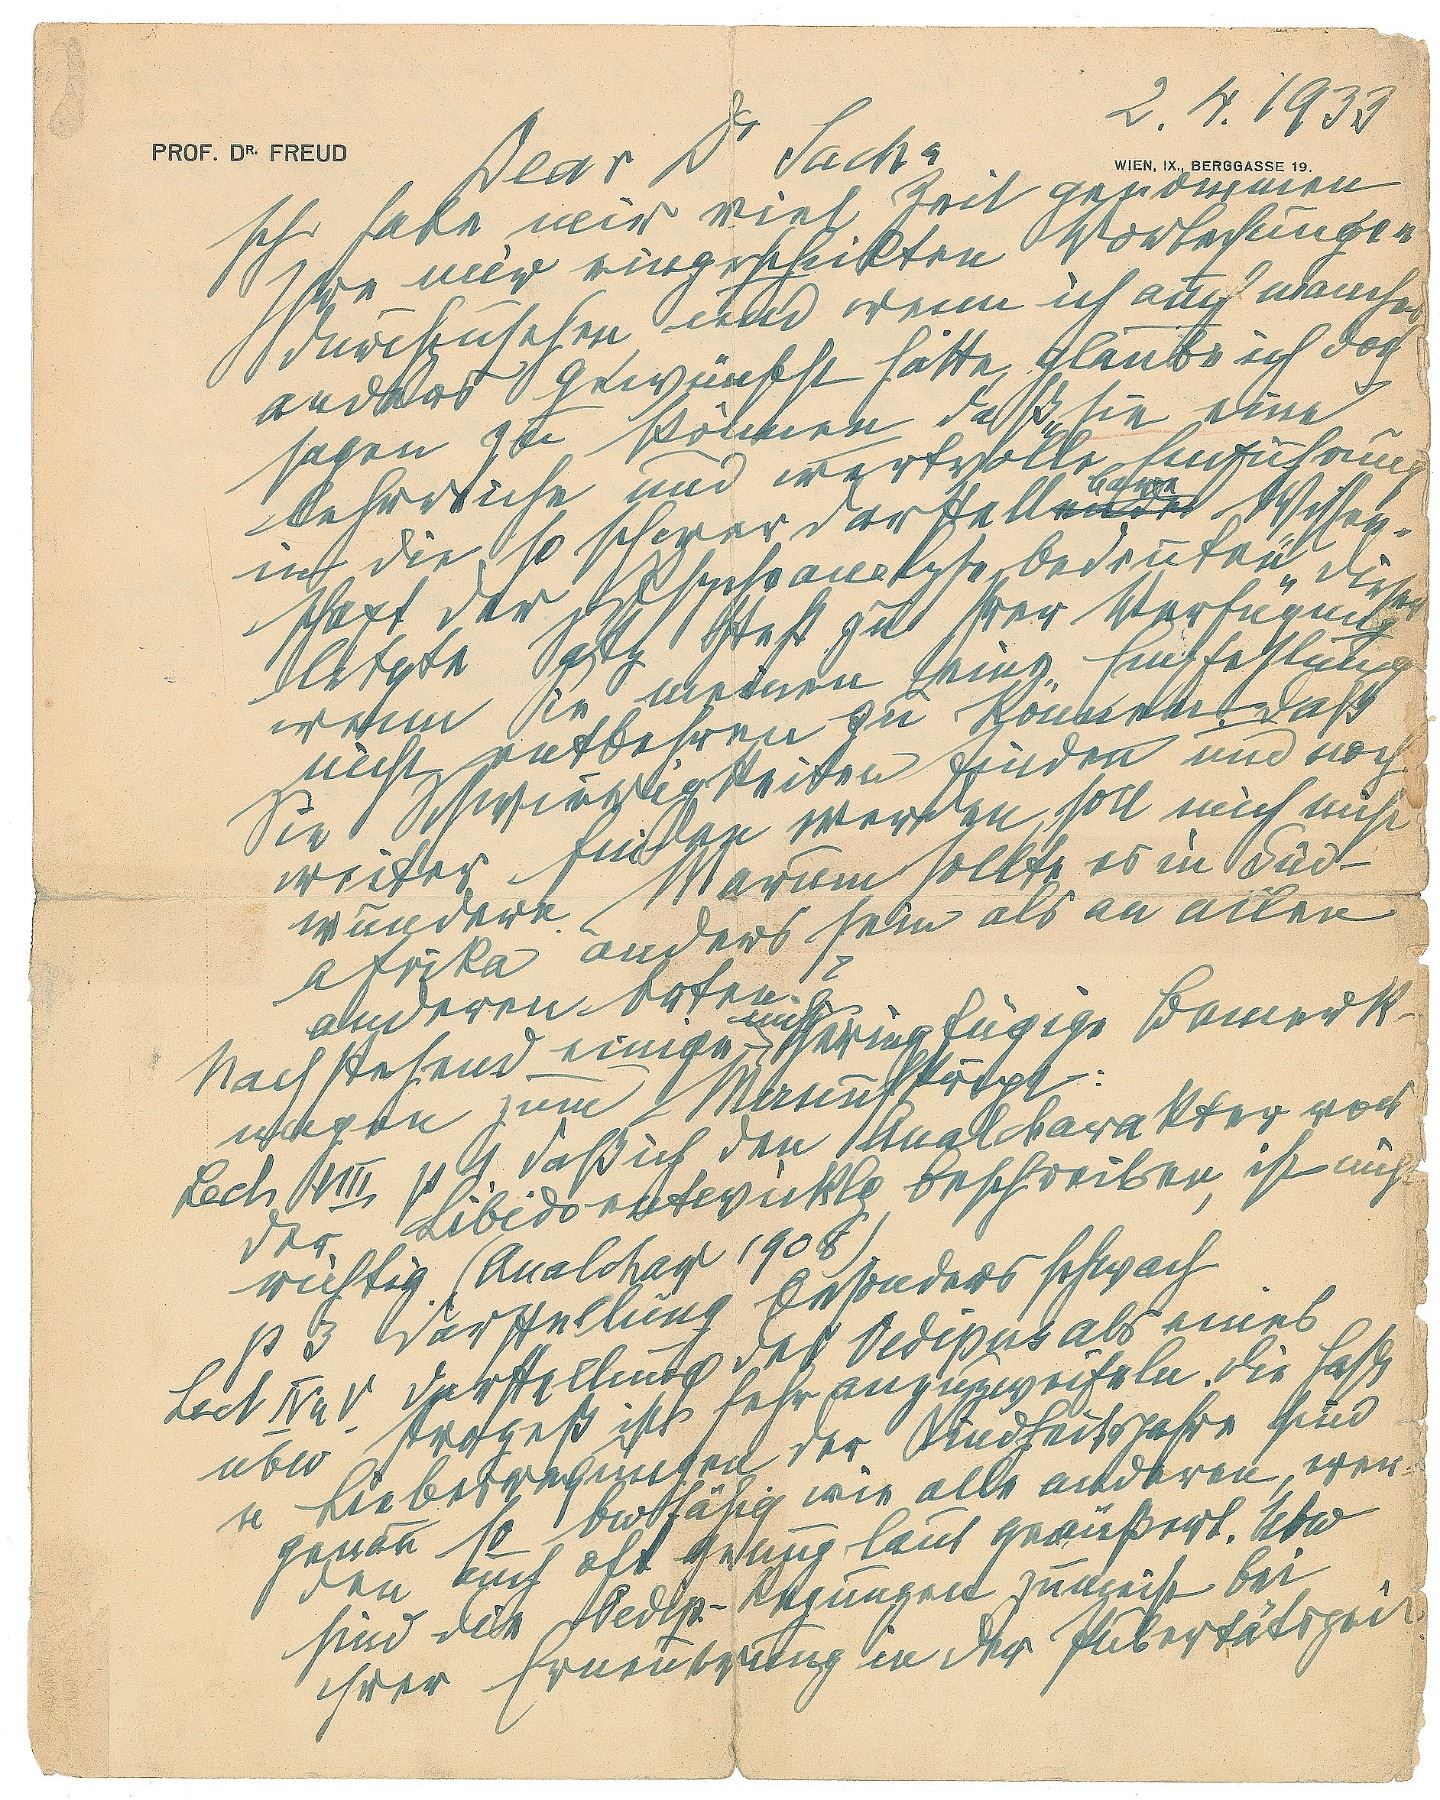 2. 4. 1933
PROF. DR. FREUD
WIEN, IX., BERGGASSE 19.
Dear Dr Sachs
Ich habe mir viel Zeit genommen
Ihre mir eingeschickten Vorlesungen
durchzusehen und wenn ich auch manches
anders gewünscht hätte, glaube ich doch
sagen zu können daß „sie eine
lehrreiche und wertvolle Einführung
in die so schwer darstellbare Wissen-
schaft der Psychoanalyse bedeuten" dieser
letzte Satz steht zu Ihrer Verfügung
wenn Sie meinen eine Empfehlung
nicht entbehren zu können. Daß
Sie Schwierigkeiten finden und noch
weiter finden werden, soll mich nicht
wundern. Warum sollte es in Süd-
afrika anders sein als an allen
anderen Orten?
Nachstehend einige geringfügige Bemerk-
ungen zum Manuskript:
Lect VIII p 1 daß ich den Analcharakter vor
der Libidoentwicklg beschreiben, ist nicht
richtig (Analchar 1908)
p 3 Darstellung besonders schwach
Lect IV u V Darstellung des Oedipus als eines
ubw Prozeß ist sehr anzuzweifeln. Die Haß
u Liebesregungen der Kindheitsjahre sind
genau so bwfähig wie alle anderen, wer-
den auch oft genug laut geäußert. Ubw
sind die Oedip-Regungen zumeist bei
ihrer Erneuerung in der Pubertätszeit